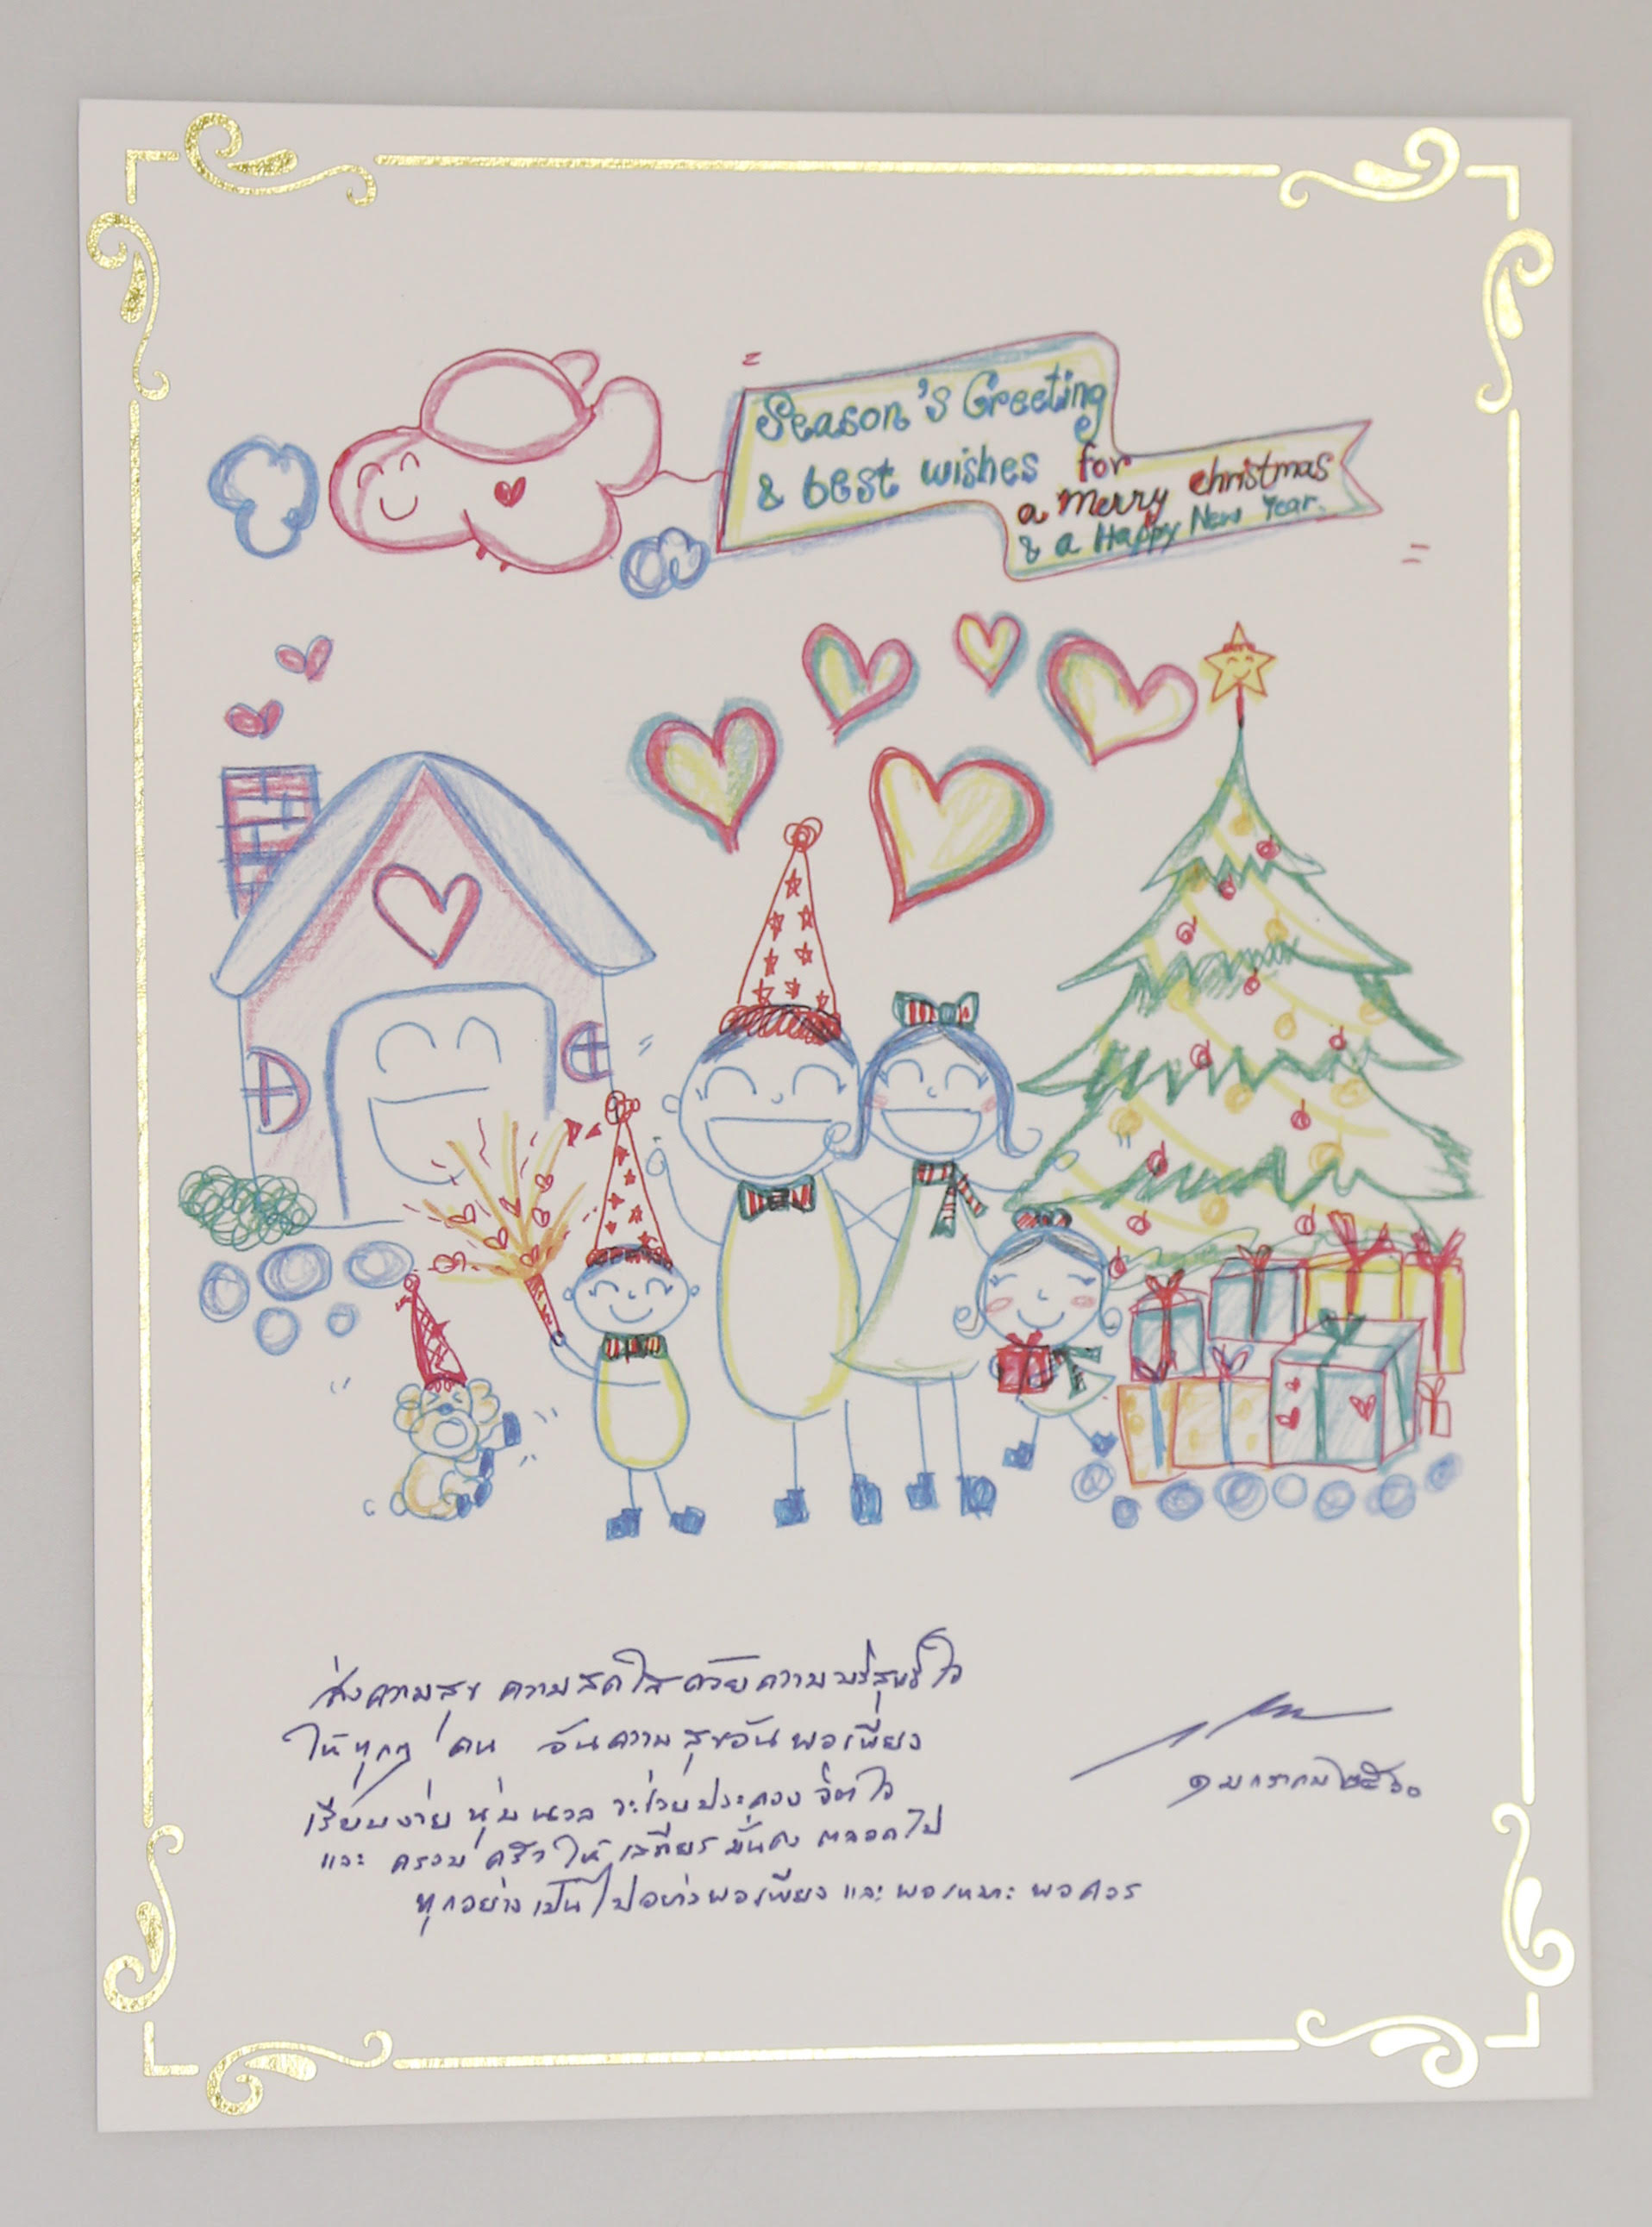 Season's Greeting
& best wishes for
a merry christmas
& a Happy New Year.
ส่งความสุข ความสดใส ด้วยความบริสุทธิ์ใจ
ให้ทุกๆ คน อันความสุขอันพอเพียง
เรียบง่าย นุ่มนวล จะช่วยประคอง จิตใจ
และ ครอบครัว ให้ เสถียร มั่นคง ตลอดไป
ทุกอย่าง เป็นไปอย่างพอเพียง และ พอเหมาะ พอควร
๑ มกราคม ๒๕๖๐